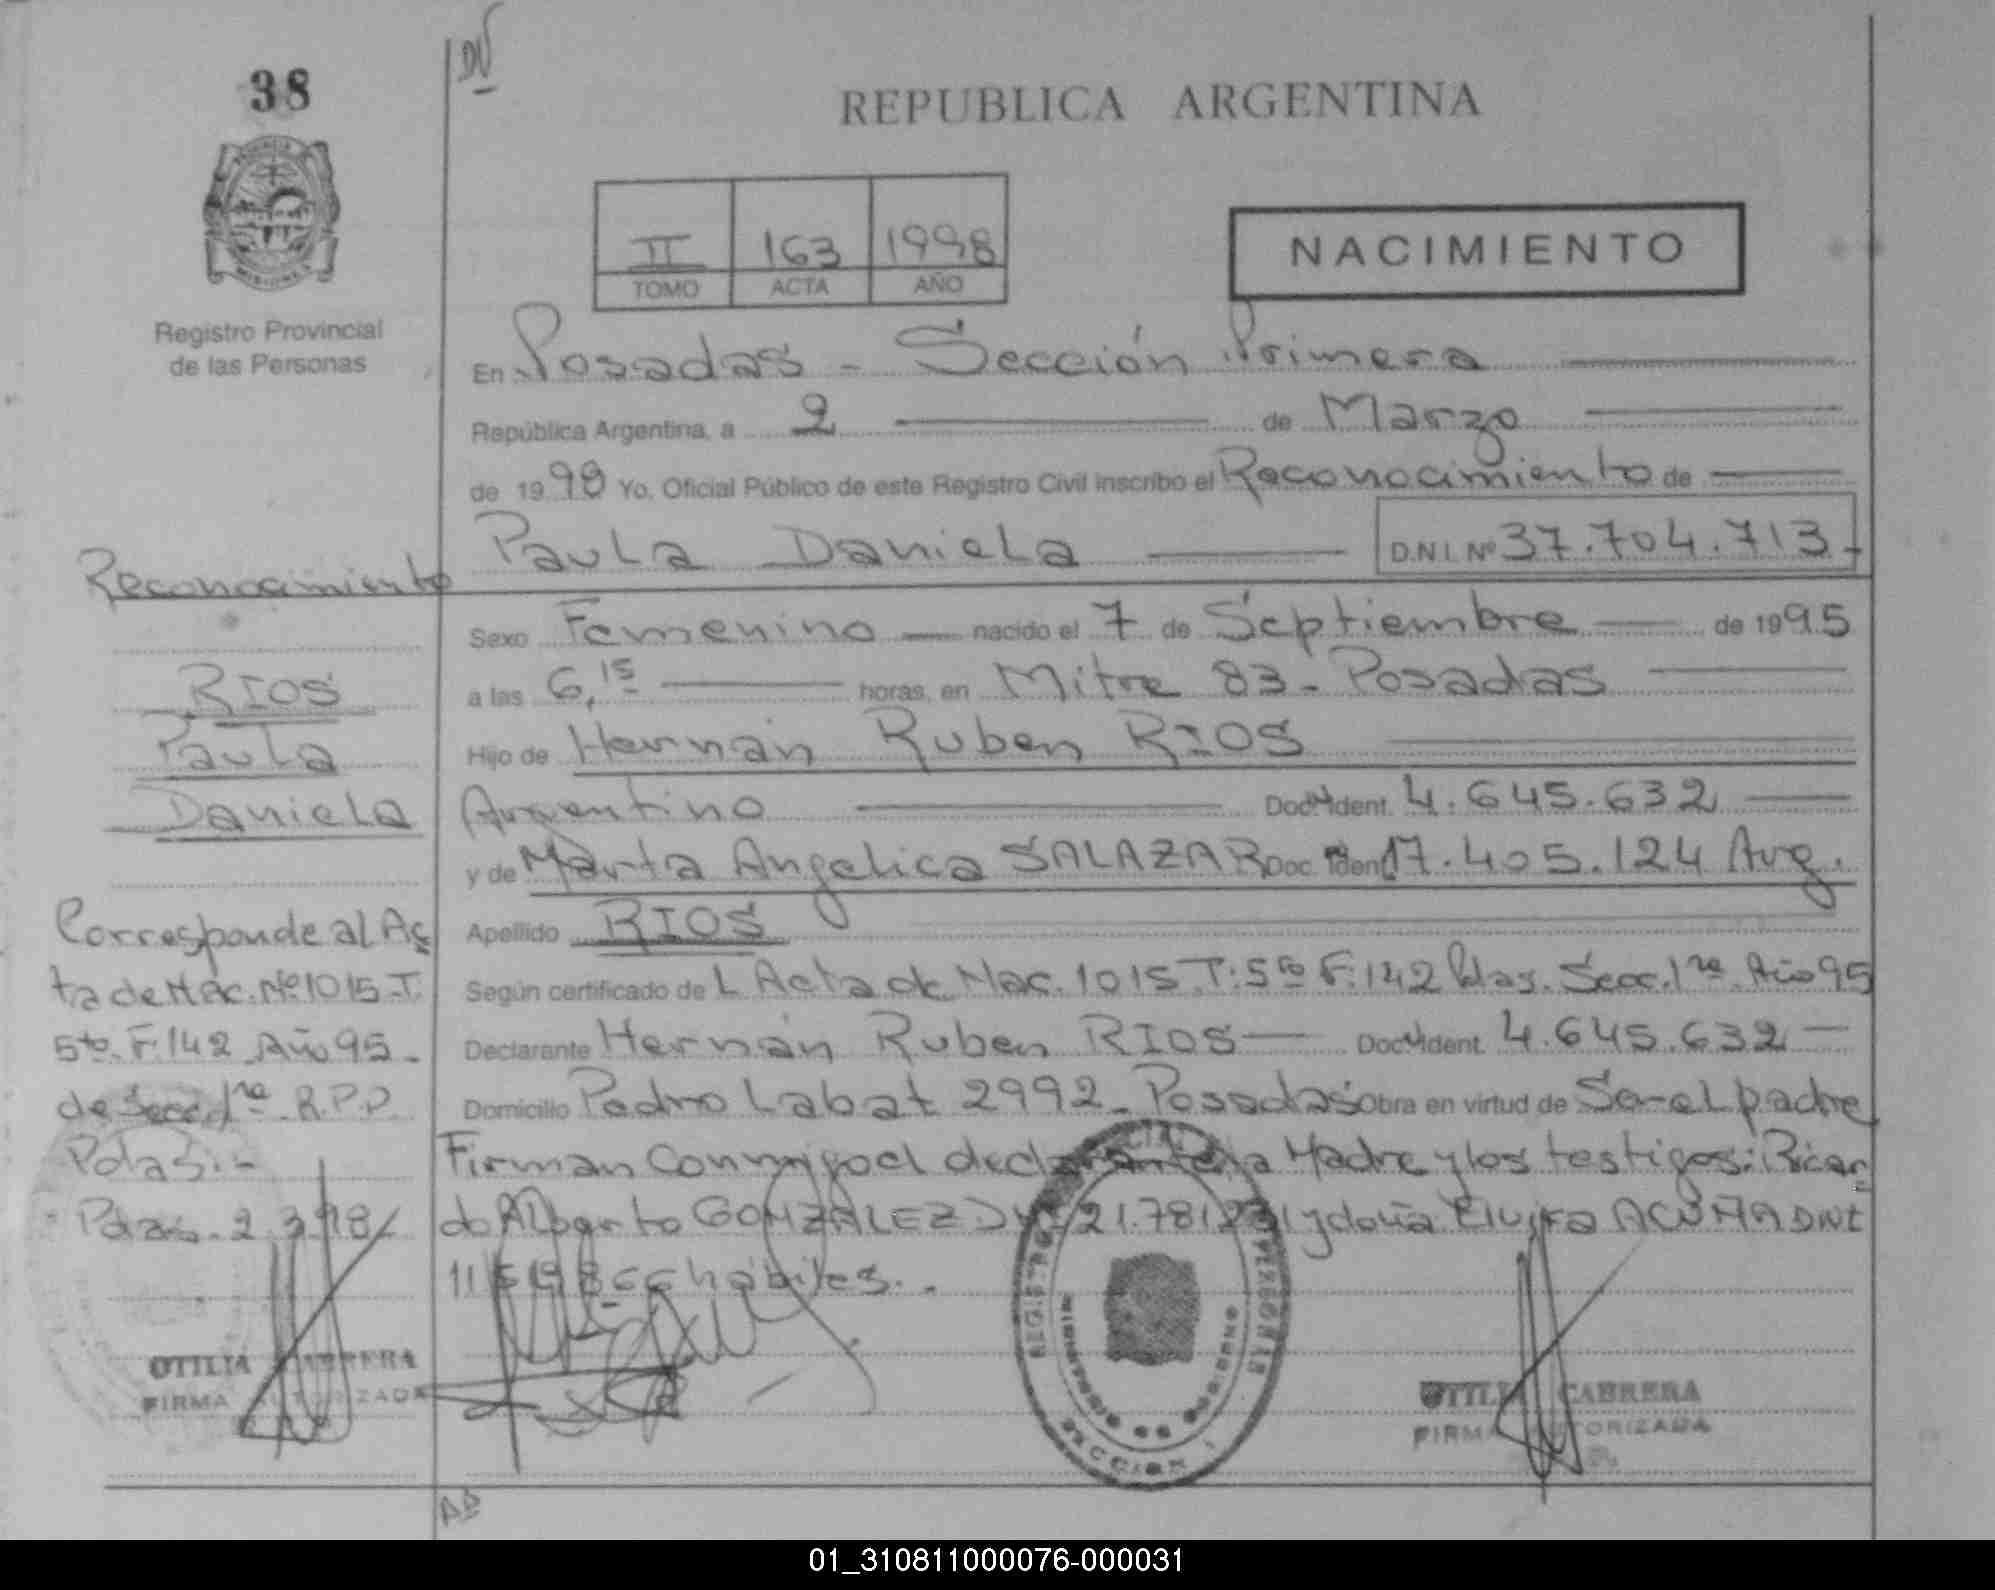 38
DV
REPUBLICA ARGENTINA
PROVINCIA
MISIONES
II 163 1998
TOMO ACTA AÑO
NACIMIENTO
Registro Provincial
de las Personas
En Posadas - Sección Primera
República Argentina, a 2 de Marzo
de 1998 Yo, Oficial Público de este Registro Civil inscribo el Reconocimiento de
Paula Daniela D.N.I. Nº 37.704.713.-
Sexo Femenino nacido el 7 de Septiembre de 1995
a las 6,15 horas, en Mitre 83 - Posadas
Hijo de Hernán Ruben RIOS
Argentino Doc. Ident. 4.645.632
y de Marta Angelica SALAZAR Doc. Ident. 17.405.124 Arg.
Apellido RIOS
Según certificado de L Acta de Nac. 1015 T: 5to F: 142 Pdas. Secc. 1ra Año 95
Declarante Hernán Ruben RIOS Doc. Ident. 4.645.632
Domicilio Pedro Labat 2992 - Posadas Obra en virtud de Ser el padre
Firman Conmigo el declarante la Madre y los testigos: Ricar
do Alberto GONZALEZ y doña Elvira ACUÑA DNI
habiles.-
Reconocimiento
RIOS
Paula
Daniela
Corresponde al Ac
ta de Nac. Nº 1015 - T.
5to. F. 142 Año 95 -
de Secc. 1ra R.P.P.
Pdas.-
Pdas. 2.3.98
OTILIA CABRERA
FIRMA AUTORIZADA
REGISTRO PERSONAS
SECCION 1
OTILIA CABRERA
FIRMA AUTORIZADA
01_310811000076-000031